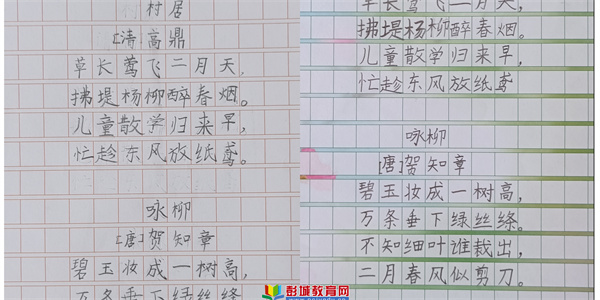 村居
[清]高鼎
草长莺飞二月天，
拂堤杨柳醉春烟。
儿童散学归来早，
忙趁东风放纸鸢。
咏柳
[唐]贺知章
碧玉妆成一树高，
万条垂下绿丝绦。
草长莺飞二月天，
拂堤杨柳醉春烟。
儿童散学归来早，
忙趁东风放纸鸢
咏柳
[唐]贺知章
碧玉妆成一树高，
万条垂下绿丝绦。
不知细叶谁裁出，
二月春风似剪刀。
彭城教育网